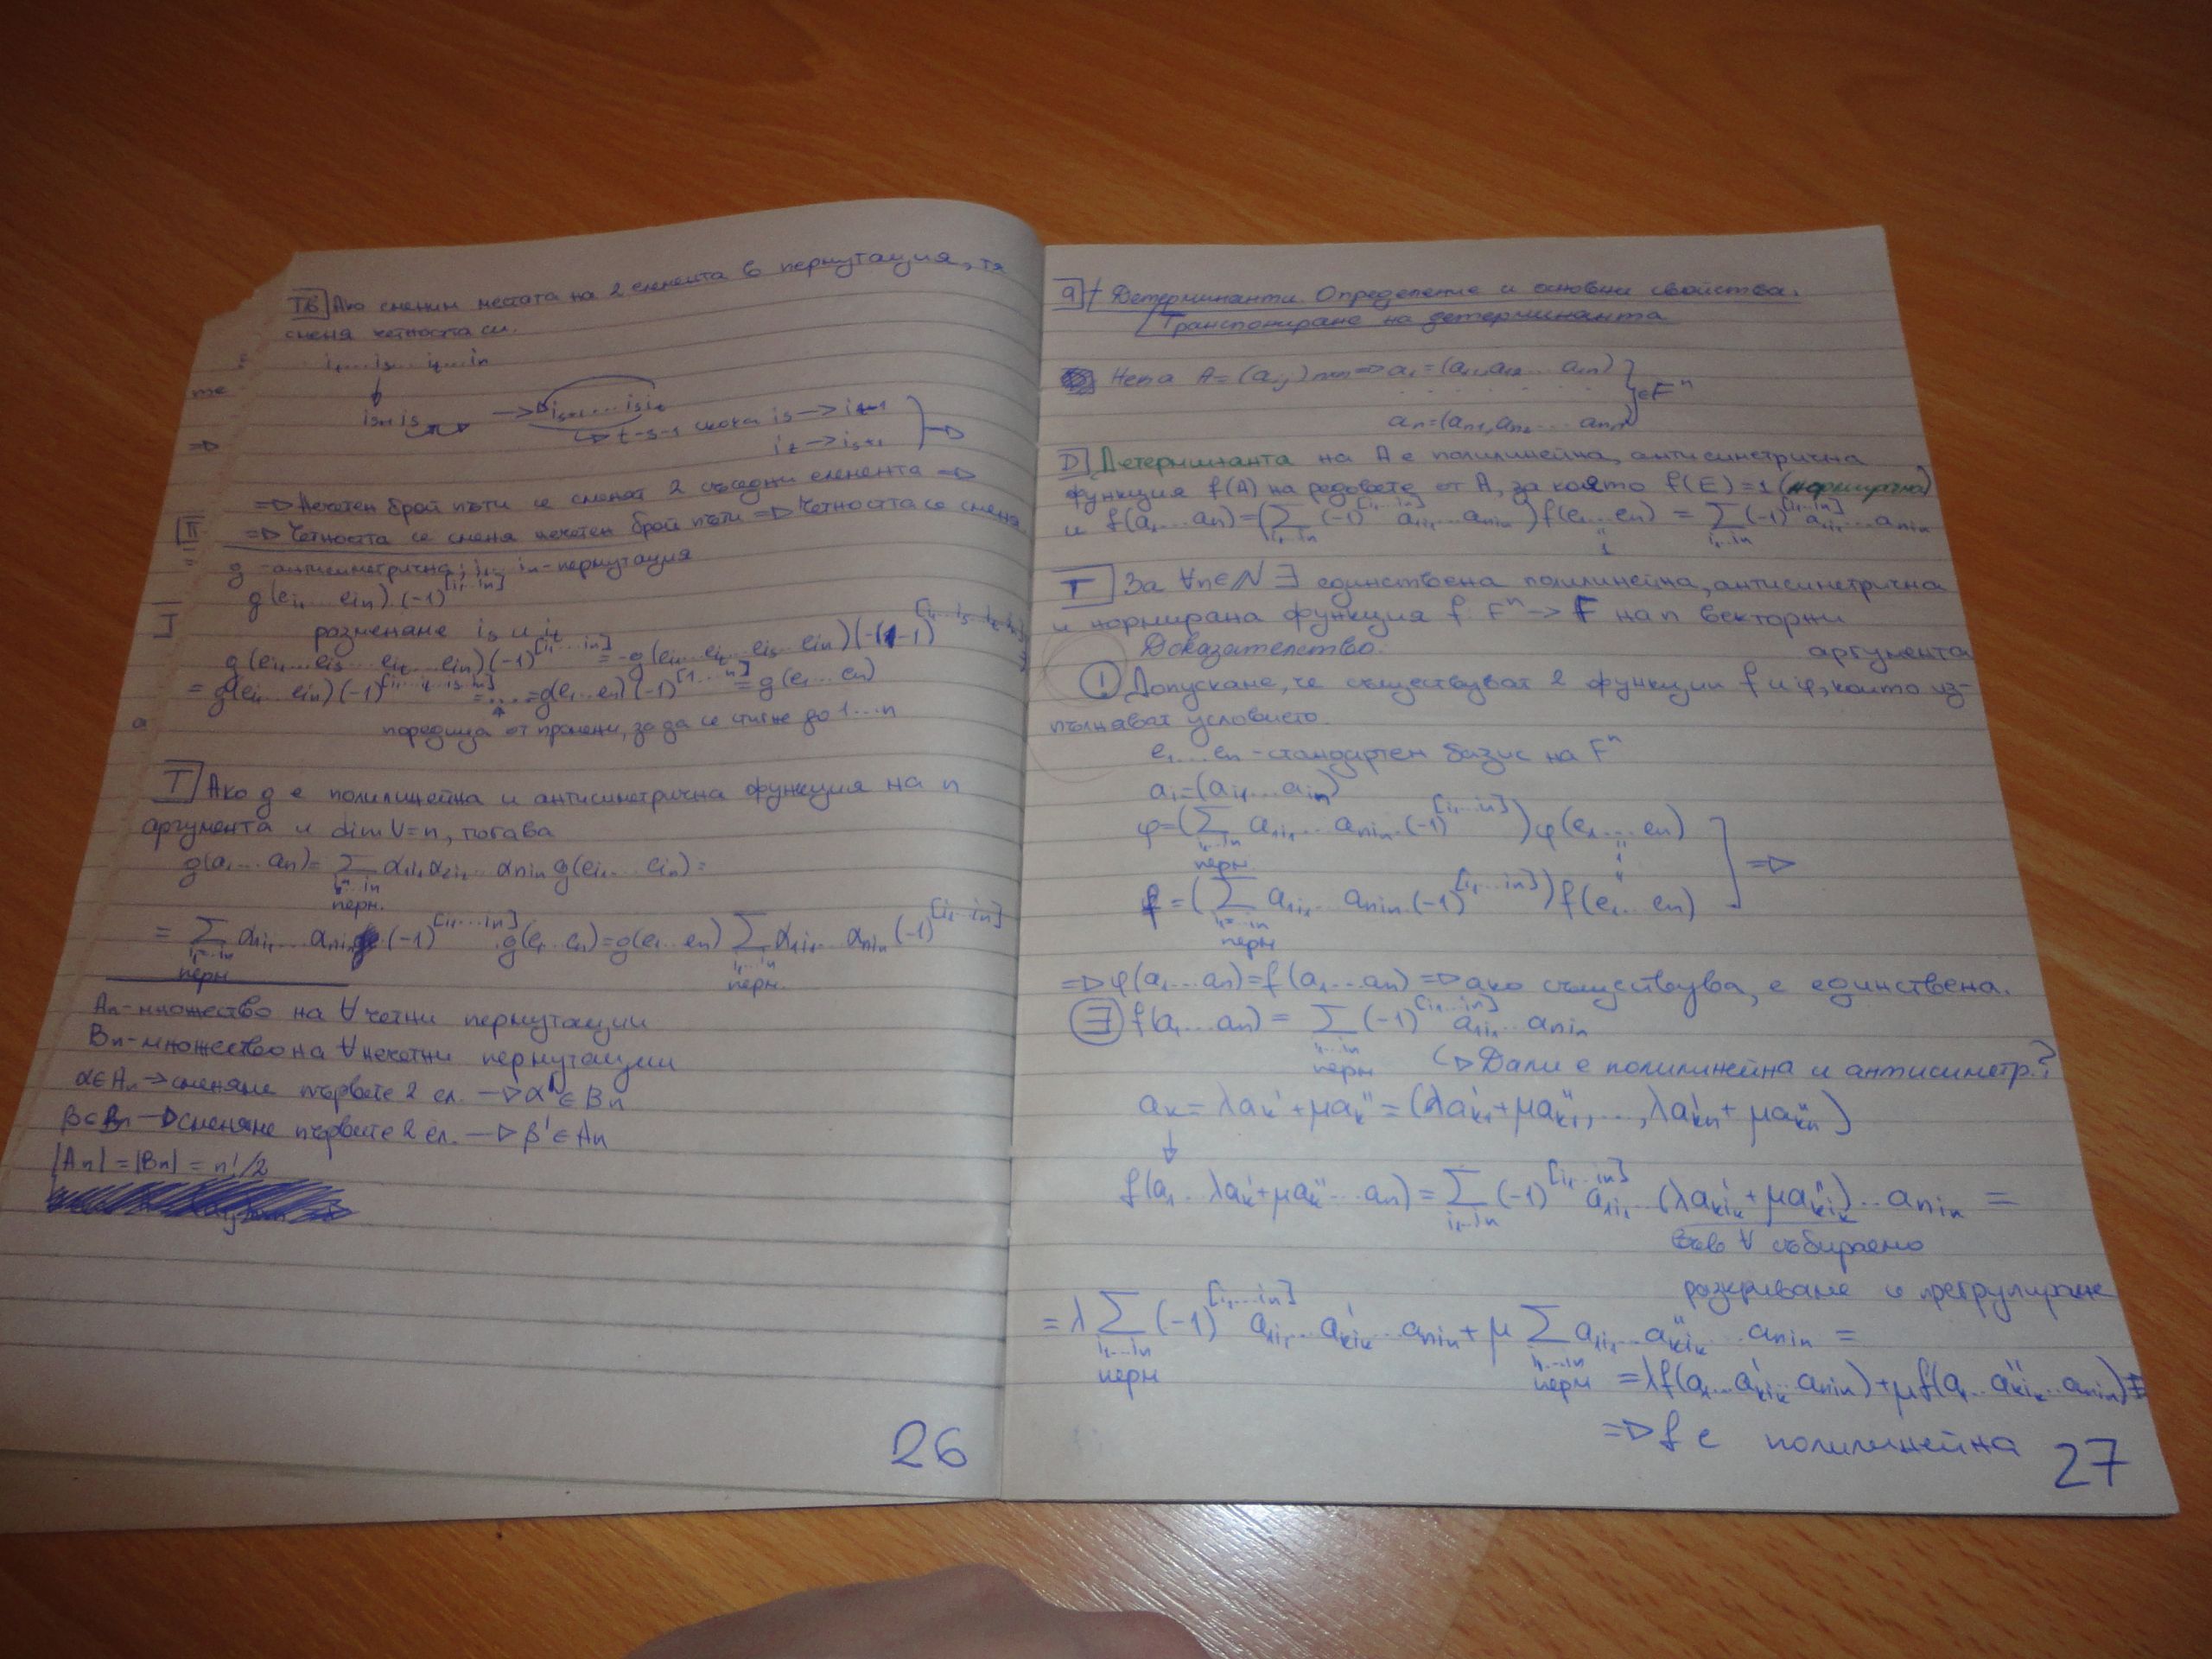 Тв Ако сменим местата на 2 елемента в пермутация, тя
сменя четността си.
i₁...iₛ...iₜ...iₙ
→ iₛ₊₁...iₛiₜ
t-s-1 скока iₛ → iₜ₋₁
iₜ → iₛ₊₁
=> Нечетен брой пъти се сменят 2 съседни елемента =>
=> Четността се сменя нечетен брой пъти => Четността се сменя
g - антисиметрична; i₁...iₙ - пермутация
g(eᵢ₁...eᵢₙ).(-1)^[i₁...iₙ]
разменяне iₛ и iₜ
g(eᵢ₁...eᵢₛ...eᵢₜ...eᵢₙ)(-1)^[i₁...iₙ] = -g(eᵢ₁...eᵢₜ...eᵢₛ...eᵢₙ)(-(-1)^[i₁...iₛ...iₜ...iₙ]
= g(eᵢ₁...eᵢₙ)(-1)^[i₁...iₜ...iₛ...iₙ] = ... = g(e₁...eₙ)(-1)^[1...n] = g(e₁...eₙ)
поредица от промени, за да се стигне до 1...n
Т Ако g е полилинейна и антисиметрична функция на n
аргумента и dim V=n, тогава
g(a₁...aₙ) = ∑ α₁ᵢ₁α₂ᵢ₂...αₙᵢₙ g(eᵢ₁...eᵢₙ) =
i₁...iₙ
перм.
= ∑ α₁ᵢ₁...αₙᵢₙ (-1)^[i₁...iₙ] .g(e₁...eₙ) = g(e₁...eₙ) ∑ α₁ᵢ₁...αₙᵢₙ (-1)^[i₁...iₙ]
i₁...iₙ i₁...iₙ
перм перм.
Aₙ - множество на ∀ четни пермутации
Bₙ - множество на ∀ нечетни пермутации
α∈Aₙ → сменяне първите 2 ел. → α'∈Bₙ
β∈Bₙ → сменяне първите 2 ел. → β'∈Aₙ
|Aₙ| = |Bₙ| = n!/2
26
9 Детерминанти. Определение и основни свойства.
Транспониране на детерминанта
Нека A = (aᵢⱼ)ₙₓₙ => a₁ = (a₁₁, a₁₂... a₁ₙ)
∈Fⁿ
aₙ = (aₙ₁, aₙ₂... aₙₙ)
D Детерминанта на A е полилинейна, антисиметрична
функция f(A) на редовете от A, за която f(E) = 1 (нормирана)
и f(a₁...aₙ) = (∑ (-1)^[i₁...iₙ] a₁ᵢ₁...aₙᵢₙ) f(e₁...eₙ) = ∑ (-1)^[i₁...iₙ] a₁ᵢ₁...aₙᵢₙ
i₁...iₙ 1 i₁...iₙ
Т За ∀n∈N ∃ единствена полилинейна, антисиметрична
и нормирана функция f: Fⁿ → F на n векторни
аргумента
Доказателство:
! Допускане, че съществуват 2 функции f и φ, които из-
пълняват условието.
e₁...eₙ - стандартен базис на Fⁿ
aᵢ = (aᵢ₁...aᵢₙ)
φ = (∑ a₁ᵢ₁...aₙᵢₙ.(-1)^[i₁...iₙ]) φ(e₁...eₙ)
i₁...iₙ 1
перм =>
f = (∑ a₁ᵢ₁...aₙᵢₙ.(-1)^[i₁...iₙ]) f(e₁...eₙ)
i₁...iₙ
перм
=> φ(a₁...aₙ) = f(a₁...aₙ) => ако съществува, е единствена.
∃ f(a₁...aₙ) = ∑ (-1)^[i₁...iₙ] a₁ᵢ₁...aₙᵢₙ
i₁...iₙ
перм Дали е полилинейна и антисиметр.?
aₖ = λaₖ' + μaₖ'' = (λaₖ₁' + μaₖ₁'', ..., λaₖₙ' + μaₖₙ'')
f(a₁...λaₖ' + μaₖ''...aₙ) = ∑ (-1)^[i₁...iₙ] a₁ᵢ₁ (λaₖᵢₖ' + μaₖᵢₖ'')...aₙᵢₙ =
i₁...iₙ
във ∀ събираемо
разкриване и прегрупиране
= λ ∑ (-1)^[i₁...iₙ] a₁ᵢ₁...aₖᵢₖ'...aₙᵢₙ + μ ∑ a₁ᵢ₁...aₖᵢₖ''...aₙᵢₙ =
i₁...iₙ i₁...iₙ
перм перм = λf(a₁...aₖᵢₖ'...aₙᵢₙ) + μf(a₁...aₖᵢₖ''...aₙᵢₙ)
=> f е полилинейна
27